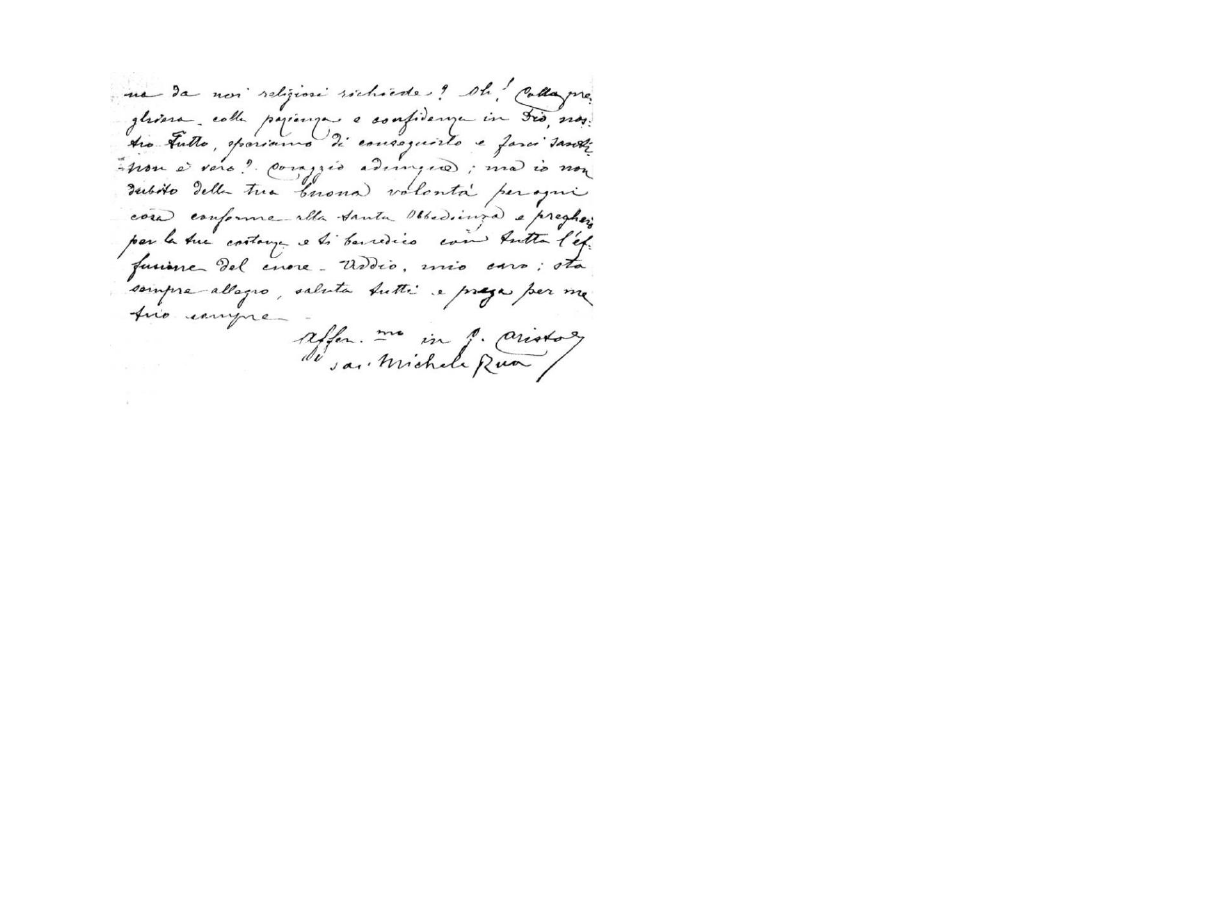 na da noi religiosi richiede? Oh! Colla pre-
ghiera, colla pazienza e confidenza in Dio, nos-
tro Tutto, speriamo di conseguirlo e farci santi
non è vero? Coraggio adunque; ma io non
dubito della tua buona volontà per ogni
cosa conforme alla santa Obbedienza e pregherò
per la tua costanza e ti benedico con tutta l'ef-
fusione del cuore - Addio, mio caro; sta
sempre allegro, saluta tutti e prega per me
tuo sempre
Affez.mo in G. Cristo
Sac. Michele Rua